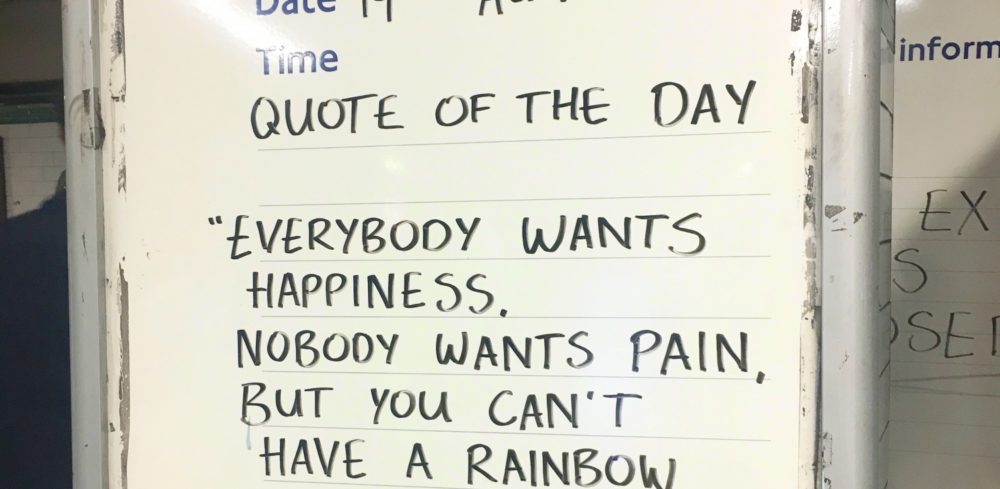 Date 19
Time
QUOTE OF THE DAY
"EVERYBODY WANTS
HAPPINESS.
NOBODY WANTS PAIN,
BUT YOU CAN'T
HAVE A RAINBOW
inform
EX
S
OSED